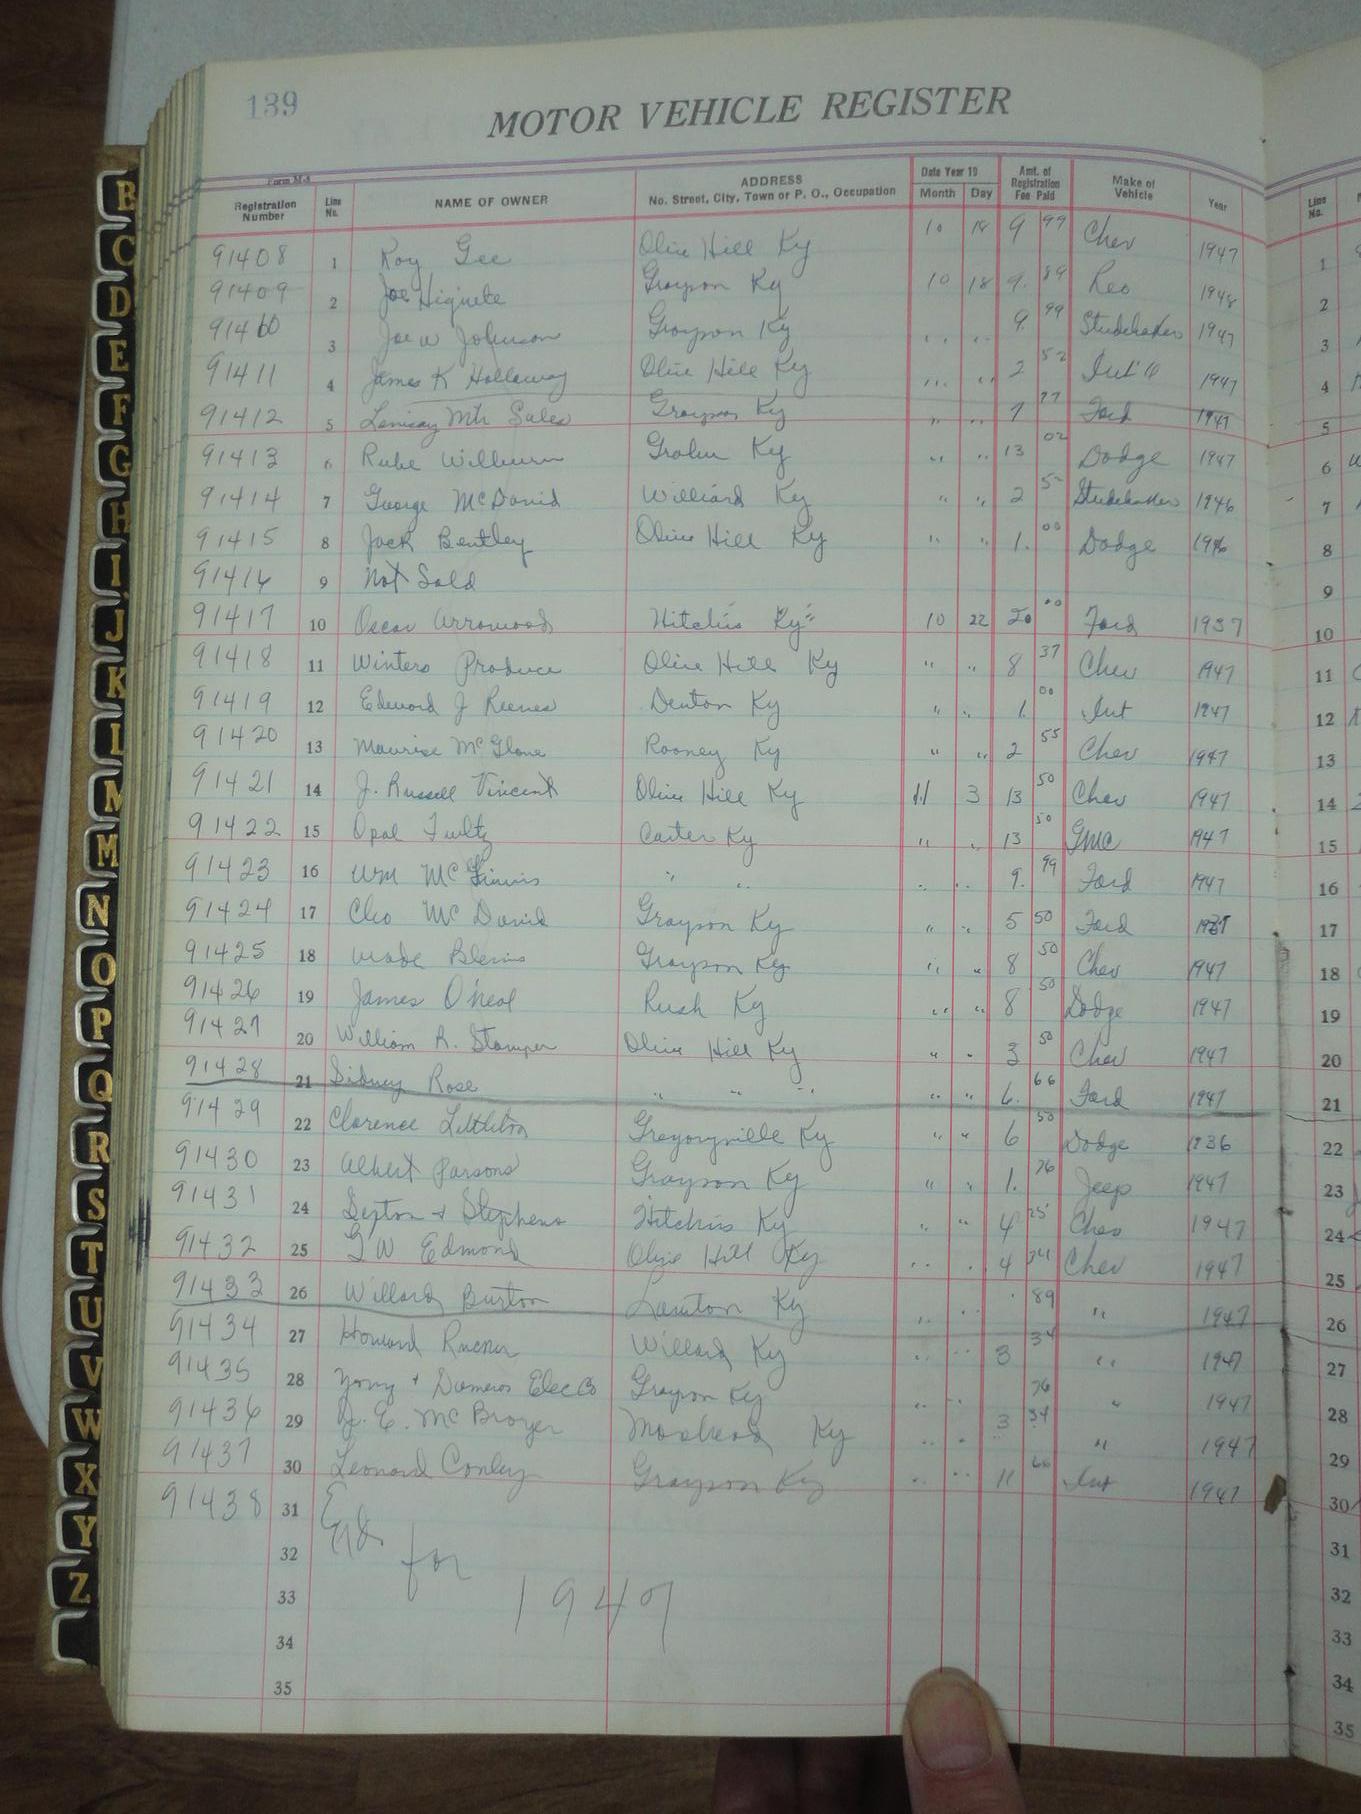 139
MOTOR VEHICLE REGISTER
Form M-4
Registration Number Line No. NAME OF OWNER ADDRESS No. Street, City, Town or P. O., Occupation Date Year 19 Month Day Amt. of Registration Fee Paid Make of Vehicle Year
91408 1 Roy Gee Olive Hill Ky 10 18 9 99 Chev 1947
91409 2 Joe Hignite Grayson Ky 10 18 9. 89 Reo 1948
91410 3 Joe W Johnson Grayson Ky " " 9. 99 Studebaker 1947
91411 4 James K Holloway Olive Hill Ky " " 2 52 Int'l 1947
91412 5 Mtr Sales Grayson Ky " " 7 77 Ford 1947
91413 6 Rube Wilburn Grahn Ky " " 13 02 Dodge 1947
91414 7 George McDavid Williard Ky " " 2 Studebaker 1946
91415 8 Jack Bentley Olive Hill Ky " " 1. 00 Dodge 1946
91416 9 Not Sold
91417 10 Oscar Arrowood Hitchins Ky 10 22 00 Ford 1937
91418 11 Winters Produce Olive Hill Ky " " 8 37 Chev 1947
91419 12 Edward J Reeves Denton Ky " " 1. 00 Int 1947
91420 13 Maurise McGlone Rooney Ky " " 2 55 Chev 1947
91421 14 J. Russell Vincent Olive Hill Ky 11 3 13 50 Chev 1947
91422 15 Opal Fultz Carter Ky " " 13 50 GMC 1947
91423 16 Wm McGinnis " " " " 9. 99 Ford 1947
91424 17 Cleo McDavid Grayson Ky " " 5 50 Ford
91425 18 Wade Blevins Grayson Ky " " 8 50 Chev 1947
91426 19 James O'neal Rush Ky " " 8 50 Dodge 1947
91427 20 William R. Stamper Olive Hill Ky " " 3 50 Chev 1947
91428 21 Sidney Rose " " " " " 6. 66 Ford 1947
91429 22 Clarence Littleton Gregoryville Ky " " 6 50 Dodge 1936
91430 23 Albert Parsons Grayson Ky " " 1. 76 Jeep 1947
91431 24 Sexton + Stephens Hitchins Ky " " 4 25 Chev 1947
91432 25 G W Edmond Olive Hill Ky " " 4 Chev 1947
91433 26 Willard Burton Lawton Ky " " 89 " 1947
91434 27 Howard Rucker Willard Ky " " 3 34 " 1947
91435 28 Young + Elec Co Grayson Ky " " 76 " 1947
91436 29 E. McBrayer Morehead Ky " " 3 34 " 1947
91437 30 Leonard Conley Grayson Ky " " 11 66 Int 1947
91438 31
32 End for
33 1947
34
35
B
C
D
E
F
G
H
I
J
K
L
M
M
N
O
P
Q
R
S
T
U
V
W
X
Y
Z
Line No.
1
2
3
4
5
6
7
8
9
10
11
12
13
14
15
16
17
18
19
20
21
22
23
24
25
26
27
28
29
30
31
32
33
34
35